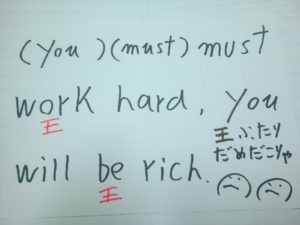 (You )(must) must
work hard, you
王
王ふたり
だめだこりゃ
will be rich.
王